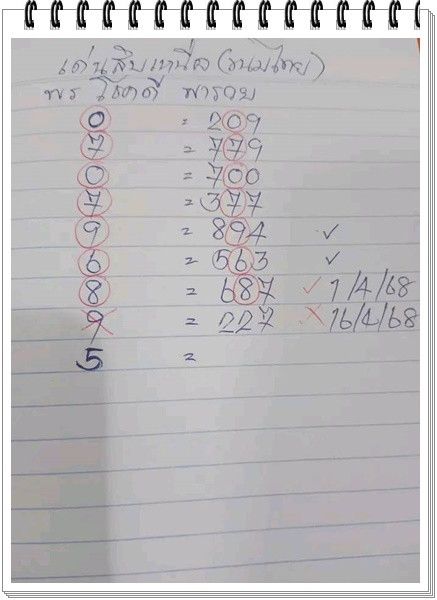 เด่นสิบเหนือ (ขนมไทย)
พร โชคดี พารวย
0 = 209
7 = 779
0 = 700
7 = 377
9 = 894 ✓
6 = 563 ✓
8 = 687 ✓ 1/4/68
9 = 227 ✗ 16/4/68
5 =